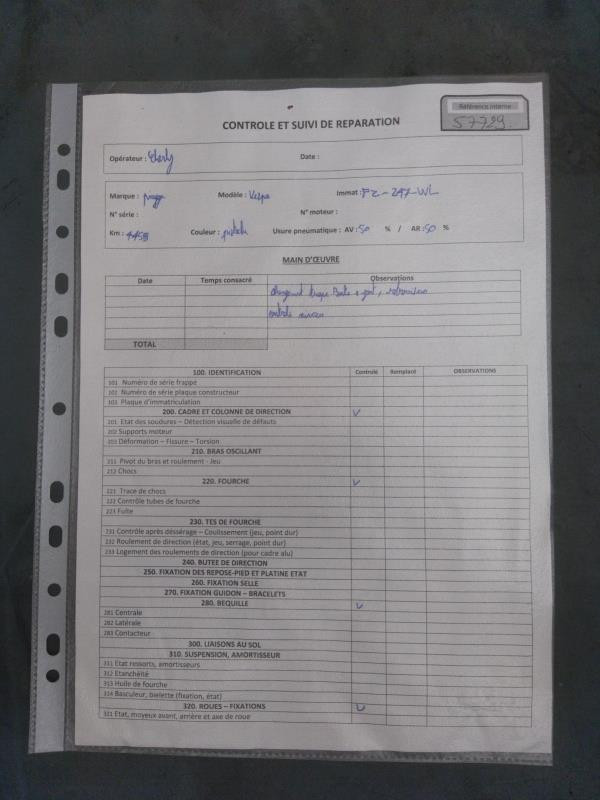 Référence interne
57729
CONTROLE ET SUIVI DE REPARATION
Opérateur : Date :
Marque : Modèle : Vespa Immat : FZ-247-WL
N° série : N° moteur :
Km : Couleur : Usure pneumatique : AV : 50 % / AR : 50 %
MAIN D'ŒUVRE
Date Temps consacré Observations
TOTAL
100. IDENTIFICATION Contrôlé Remplacé OBSERVATIONS
101 Numéro de série frappé
102 Numéro de série plaque constructeur
103 Plaque d'immatriculation
200. CADRE ET COLONNE DE DIRECTION
201 Etat des soudures – Détection visuelle de défauts
202 Supports moteur
203 Déformation – Fissure – Torsion
210. BRAS OSCILLANT
211 Pivot du bras et roulement - Jeu
212 Chocs
220. FOURCHE
221 Trace de chocs
222 Contrôle tubes de fourche
223 Fuite
230. TES DE FOURCHE
231 Contrôle après déssérage – Coulissement (jeu, point dur)
232 Roulement de direction (état, jeu, serrage, point dur)
233 Logement des roulements de direction (pour cadre alu)
240. BUTEE DE DIRECTION
250. FIXATION DES REPOSE-PIED ET PLATINE ETAT
260. FIXATION SELLE
270. FIXATION GUIDON – BRACELETS
280. BEQUILLE
281 Centrale
282 Latérale
283 Contacteur
300. LIAISONS AU SOL
310. SUSPENSION, AMORTISSEUR
311 Etat ressorts, amortisseurs
312 Etanchéité
313 Huile de fourche
314 Basculeur, bielette (fixation, état)
320. ROUES – FIXATIONS
321 Etat, moyeux avant, arrière et axe de roue